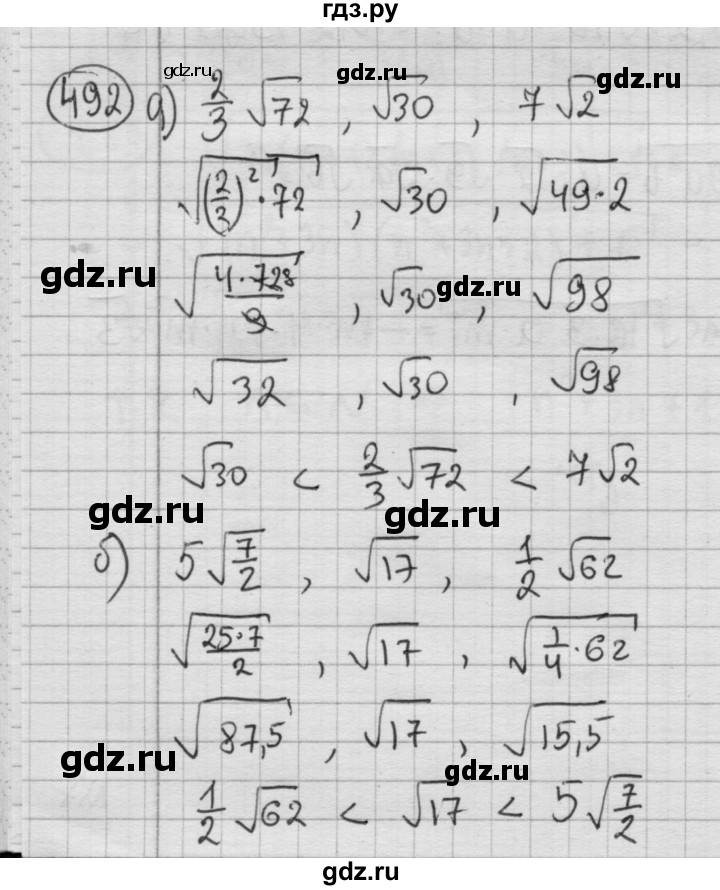 гдз.ру
gdz.ru gdz.ru gdz.ru
492 а) 2/3 √72 , √30 , 7√2
√((2/3)² · 72) , √30 , √(49·2)
gdz.ru √(4·72 8/9) , √30 , √98 gdz.ru
√32 , √30 , √98
√30 < 2/3 √72 < 7√2
gdz.ru gdz.ru
б) 5√(7/2) , √17 , 1/2 √62
√(25·7/2) , √17 , √(1/4 · 62)
√87,5 , √17 , √15,5
gdz.ru gdz.ru
1/2 √62 < √17 < 5√(7/2)
gdz.ru